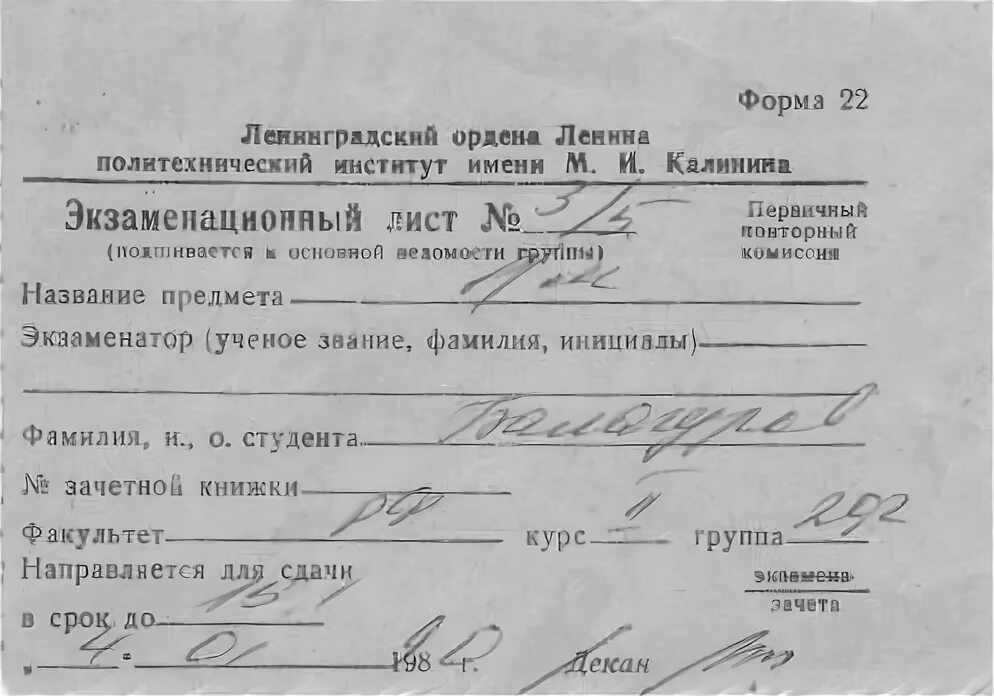 Форма 22
Ленинградский ордена Ленина
политехнический институт имени М. И. Калинина
Экзаменационный лист № 3/5
(подшивается к основной ведомости группы)
Первичный
повторный
комиссия
Название предмета
Экзаменатор (ученое звание, фамилия, инициалы)
Фамилия, и., о. студента Балагуров
№ зачетной книжки
Факультет РФ курс II группа 292
Направляется для сдачи экзамена
зачета
в срок до 15/1
„4“ 01 1980 г. Декан